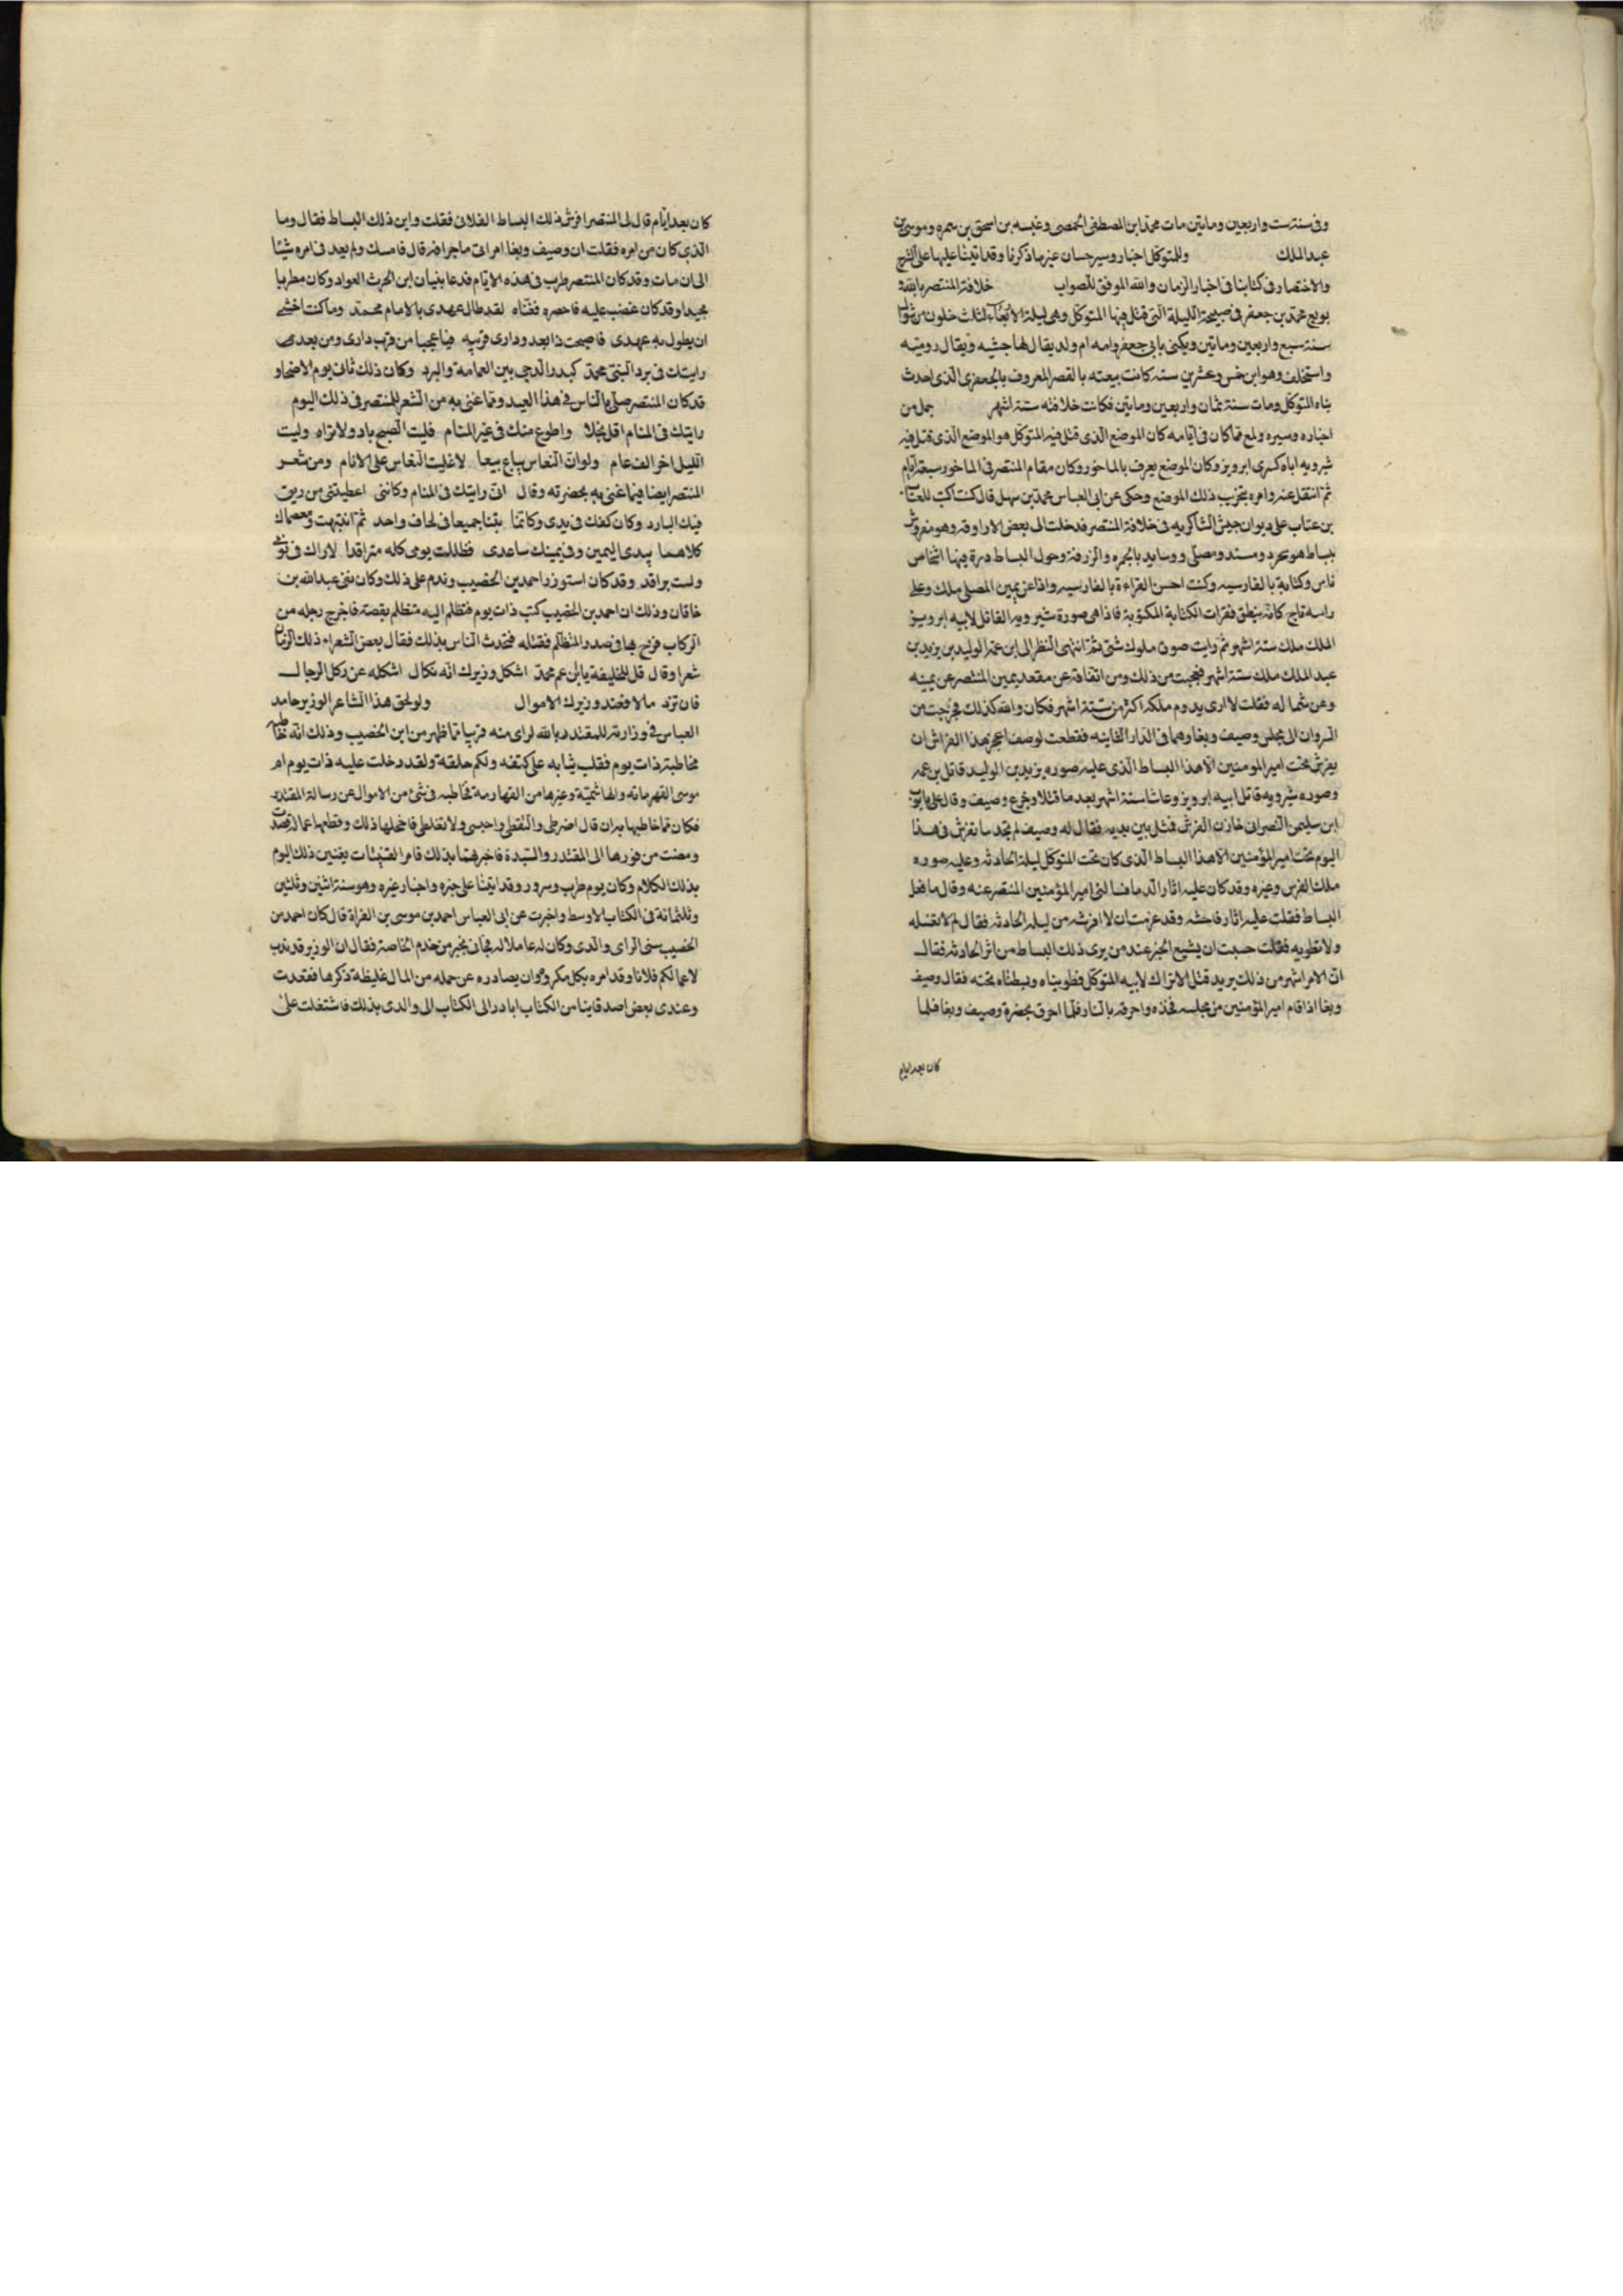 وفى سنة ست واربعين وماتين مات محمد ابن المصطفى الحمصى وعنبسه بن اسحق بن سمره وموسى بن
عبد الملك وللمتوكل اخبار وسير حسان غير ما ذكرنا وقد اتينا عليها على الشرح
والاختصار فى كتابنا فى اخبار الزمان والله الموفق للصواب خلافة المنتصر بالله
بويع محمد بن جعفر فى صبيحة الليلة التى قتل فيها المتوكل وهى ليلة الاربعاء لثلث خلون من شوال
سنة سبع واربعين وماتين ويكنى بابى جعفر وامه ام ولد يقال لها حبشيه ويقال روميه
واستخلف وهو ابن خمس وعشرين سنه كانت بيعته بالقصر المعروف بالجعفرى الذى احدث
بناه المتوكل ومات سنة ثمان واربعين وماتين فكانت خلافته ستة اشهر جمل من
اخباره وسيره ولمع مما كان فى ايامه كان الموضع الذى قتل فيه المتوكل هو الموضع الذى قتل فيه
شيرويه اباه كسرى ابرويز وكان الموضع يعرف بالماخور وكان مقام المنتصر فى الماخور سبعة ايام
ثم انتقل عنه وامره بتخريب ذلك الموضع وحكى عن ابى العباس محمد بن سهل قال كنت اكتب للعتاب
بن عتاب على ديوان جيش الشاكريه فى خلافة المنتصر فدخلت الى بعض الاروقه وهو مفروش
ببساط هو بحرد ومسند ومصلى ووسايد بالحمره والزرقة وحول البساط درة فيها اشخاص
ناس وكتابة بالفارسيه وكنت احسن القراءة بالفارسيه واذا عن يمين المصلى ملك وعلى
راسه تاج كانه ينطق فقرات الكتابة المكتوبة فاذا هى صورة شيرويه القاتل لابيه ابرويز
الملك ملك ستة اشهر ثم رايت صور ملوك شتى ثم انتهى النظر الى ابن عمه الوليد بن يزيد بن
عبد الملك ملك ستة اشهر فعجبت من ذلك ومن اتفاقه عن مقعد يمين المنتصر عن يمينه
وعن شماله فقلت لا ارى يدوم ملكه اكثر من ستة اشهر فكان والله كذلك فخرجت من
الروان الى مجلس وصيف وبغا وهما فى الدار الثانيه فقطعت لوصف اعجز هذا الفراش ان
يفرش تحت امير المومنين الا هذا البساط الذى عليه صوره يزيد بن الوليد قاتل بن عمه
وصوره شيرويه قاتل ابيه ابرويز وعاشا ستة اشهر بعد ما قتلا وجزع وصيف وقال على بايوب
ابن سليمن النصرانى خازن الفرش فمثل بين يديه فقال له وصيف لم تجد ما تفرش فى هذا
اليوم تحت امير المؤمنين الا هذا البساط الذى كان تحت المتوكل ليلة الحادثه وعليه صوره
ملك الفرس وغيره وقد كان عليه اثار الدما فسالنى امير المؤمنين المنتصر عنه وقال ما فعل
البساط فقلت عليه اثار فاحشه وقد عزمت ان لا افرشه من ليله الحادثه فقال لم لا تغسله
ولا تطويه فقلت حسبت ان يشيع الخبر عند من يرى ذلك البساط من اثر الحادثه فقال
ان الامر اشهر من ذلك يريد قتل الاتراك لابيه المتوكل فطويناه وبسطناه تحته فقال وصيف
وبغا اذا قام امير المؤمنين من مجلسه فخذه واحرقه بالنار فلما احرق بحضرة وصيف وبغا فلما
كان بعد ايام
كان بعد ايام قال لى المنتصر افرش ذلك البساط الفلانى فقلت واين ذلك البساط فقال وما
الذى كان من امره فقلت ان وصيف وبغا امرانى باحراقه قال فامسك ولم يعد فى امره شيئا
الى ان مات وقد كان المنتصر طرب فى هذه الايام فدعا بنيان ابن الحرث العواد وكان مطربا
مجيدا وقد كان غضب عليه فاحضره فغناه لقد طال عهدى بالامام محمد وما كنت اخشى
ان يطول به عهدى فاصبحت ذا بعد ودارى قريبه فيا عجبا من قرب دارى ومن بعدى
رايتك فى برد النبى محمد كبدر الدجى بين العمامة والبرد وكان ذلك ثانى يوم الاضحا و
قد كان المنتصر صلى بالناس فى هذا العيد ومما غنى به من الشعر للمنتصر فى ذلك اليوم
رايتك فى المنام اقل بخلا واطوع منك فى غير المنام فليت الصبح باد ولا نراه وليت
الليل اخر الف عام ولو ان النعاس يباع بيعا لاغليت النعاس على الانام ومن شعر
المنتصر ايضا فيما غنى به بحضرته وقال انى رايتك فى المنام وكاننى اعطيتنى من ريق
فيك البارد وكان كفك فى يدى وكاننا بتنا جميعا فى لحاف واحد ثم انتبهت ومعصماك
كلاهما بيدى اليمين وفى يمينك ساعدى فظللت يومى كله متراقدا لاراك فى نومى
ولست براقد وقد كان استوزر احمد بن الخصيب وندم على ذلك وكان نفى عبد الله بن
خاقان وذلك ان احمد بن الخصيب ركب ذات يوم فتظلم اليه متظلم بقصة فاخرج رجله من
الركاب فزج بها فى صدر المتظلم فقتله فتحدث الناس بذلك فقال بعض الشعراء ذلك الزمان
شعرا وقال قل للخليفة يا ابن عم محمد اشكل وزيرك انه نكال اشكله عن ركل الرجال
فان ترد مالا فعند وزيرك الاموال ولو لحق هذا الشاعر الوزير حامد
العباس فى وزارته للمقتدر بالله لراى منه قريبا مما ظهر من ابن الخصيب وذلك انه خاطبه
مخاطبة ذات يوم فقلب ثيابه على كتفه ولكم حلقه ولقد دخلت عليه ذات يوم ام
موسى القهرمانه والهاشمية وغيرها من القهارمة تخاطبه فى شئ من الاموال عن رسالة المقتدر
فكان مما خاطبها به ان قال اضرطى والتقطى واحبسى ولا تغلطى فاخجلها ذلك وقطعها عما له قصدت
ومضت من فورها الى المقتدر والسيدة فاخبرتهما بذلك فامر القينات يغنين ذلك اليوم
بذلك الكلام وكان يوم طرب وسرور وقد اتينا على خبره واخبار غيره وهو سنة اثنين وثلثين
وثلثمائة فى الكتاب الاوسط واخبرت عن ابى العباس احمد بن موسى بن الفراة قال كان احمد بن
الخصيب سئى الراى والدى وكان له عاملا له فجاءنى مخبر من خدم الخاصة فقال ان الوزير قد ندب
لاعمالكم فلانا وقد امره بكل مكروه وان يصادره عن حمله من المال غليظة ذكرها فقعدت
وعندى بعض اصدقاينا من الكتاب ابادر الى الكتاب الى والدى بذلك فاشتغلت على